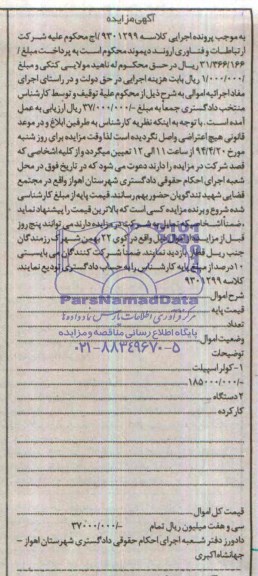 آگهی مزایده
به موجب پرونده اجرایی کلاسه ۹۳۰۱۲۹۹/اج محکوم علیه شرکت
ارتباطات و فناوری اروند، دیموند محکوم است به پرداخت مبلغ /
۳۱/۳۶۶/۱۶۶ ریال در حق محکوم له ناهید مولایی کتکی و مبلغ
/۱/۰۰۰/۰۰۰ ریال بابت هزینه اجرایی در حق دولت و در راستای اجرای
مفاد اجرائیه اموالی به شرح ذیل از محکوم علیه توقیف و توسط کارشناس
منتخب دادگستری جمعاً به مبلغ /۳۷/۰۰۰/۰۰۰ ریال ارزیابی به عمل
آمده است. با توجه به اینکه نظریه کارشناس به طرفین ابلاغ و در موعد
قانونی هیچ اعتراضی واصل نگردیده است لذا وقت مزایده برای روز شنبه
مورخ ۹۴/۴/۲۰ از ساعت ۱۱ الی ۱۲ تعیین میگردد و از کلیه اشخاصی که
قصد شرکت در مزایده را دارند دعوت می شود که در تاریخ فوق در محل
شعبه اجرای احکام حقوقی دادگستری شهرستان اهواز واقع در مجتمع
قضایی شهید تندگویان حضور بهم رسانند. قیمت پایه از مبلغ کارشناسی
شده شروع و برنده مزایده کسی است که بالاترین قیمت را پیشنهاد نماید
، ضمناً اشخاصی که تمایل به شرکت در مزایده دارند می توانند پنج روز
قبل از مزایده از اموال فوق واقع در کوی ۲۲ بهمن شهرک رزمندگان
جنب ریل قطار بازدید نمایند. ضمناً شرکت کنندگان می بایستی
۱۰ درصد از مبلغ پایه کارشناسی را به حساب دادگستری تودیع نمایند.
کلاسه ۹۳۰۱۲۹۹
شرح اموال
قیمت پایه
تعداد
وضعیت اموال
توضیحات
۱- کولر اسپیلت
۱۸۵۰۰۰/۰۰۰/-
۲ دستگاه
کار کرده
ParsNamadData
مرکز فرآوری اطلاعات پارس نماد داده ها
پایگاه اطلاع رسانی مناقصه و مزایده
۰۲۱-۸۸۳۴۹۶۷۰-۵
قیمت کل اموال
سی و هفت میلیون ریال تمام ۳۷۰۰۰/۰۰۰/-
دادورز دفتر شعبه اجرای احکام حقوقی دادگستری شهرستان اهواز -
جهانشاه اکبری